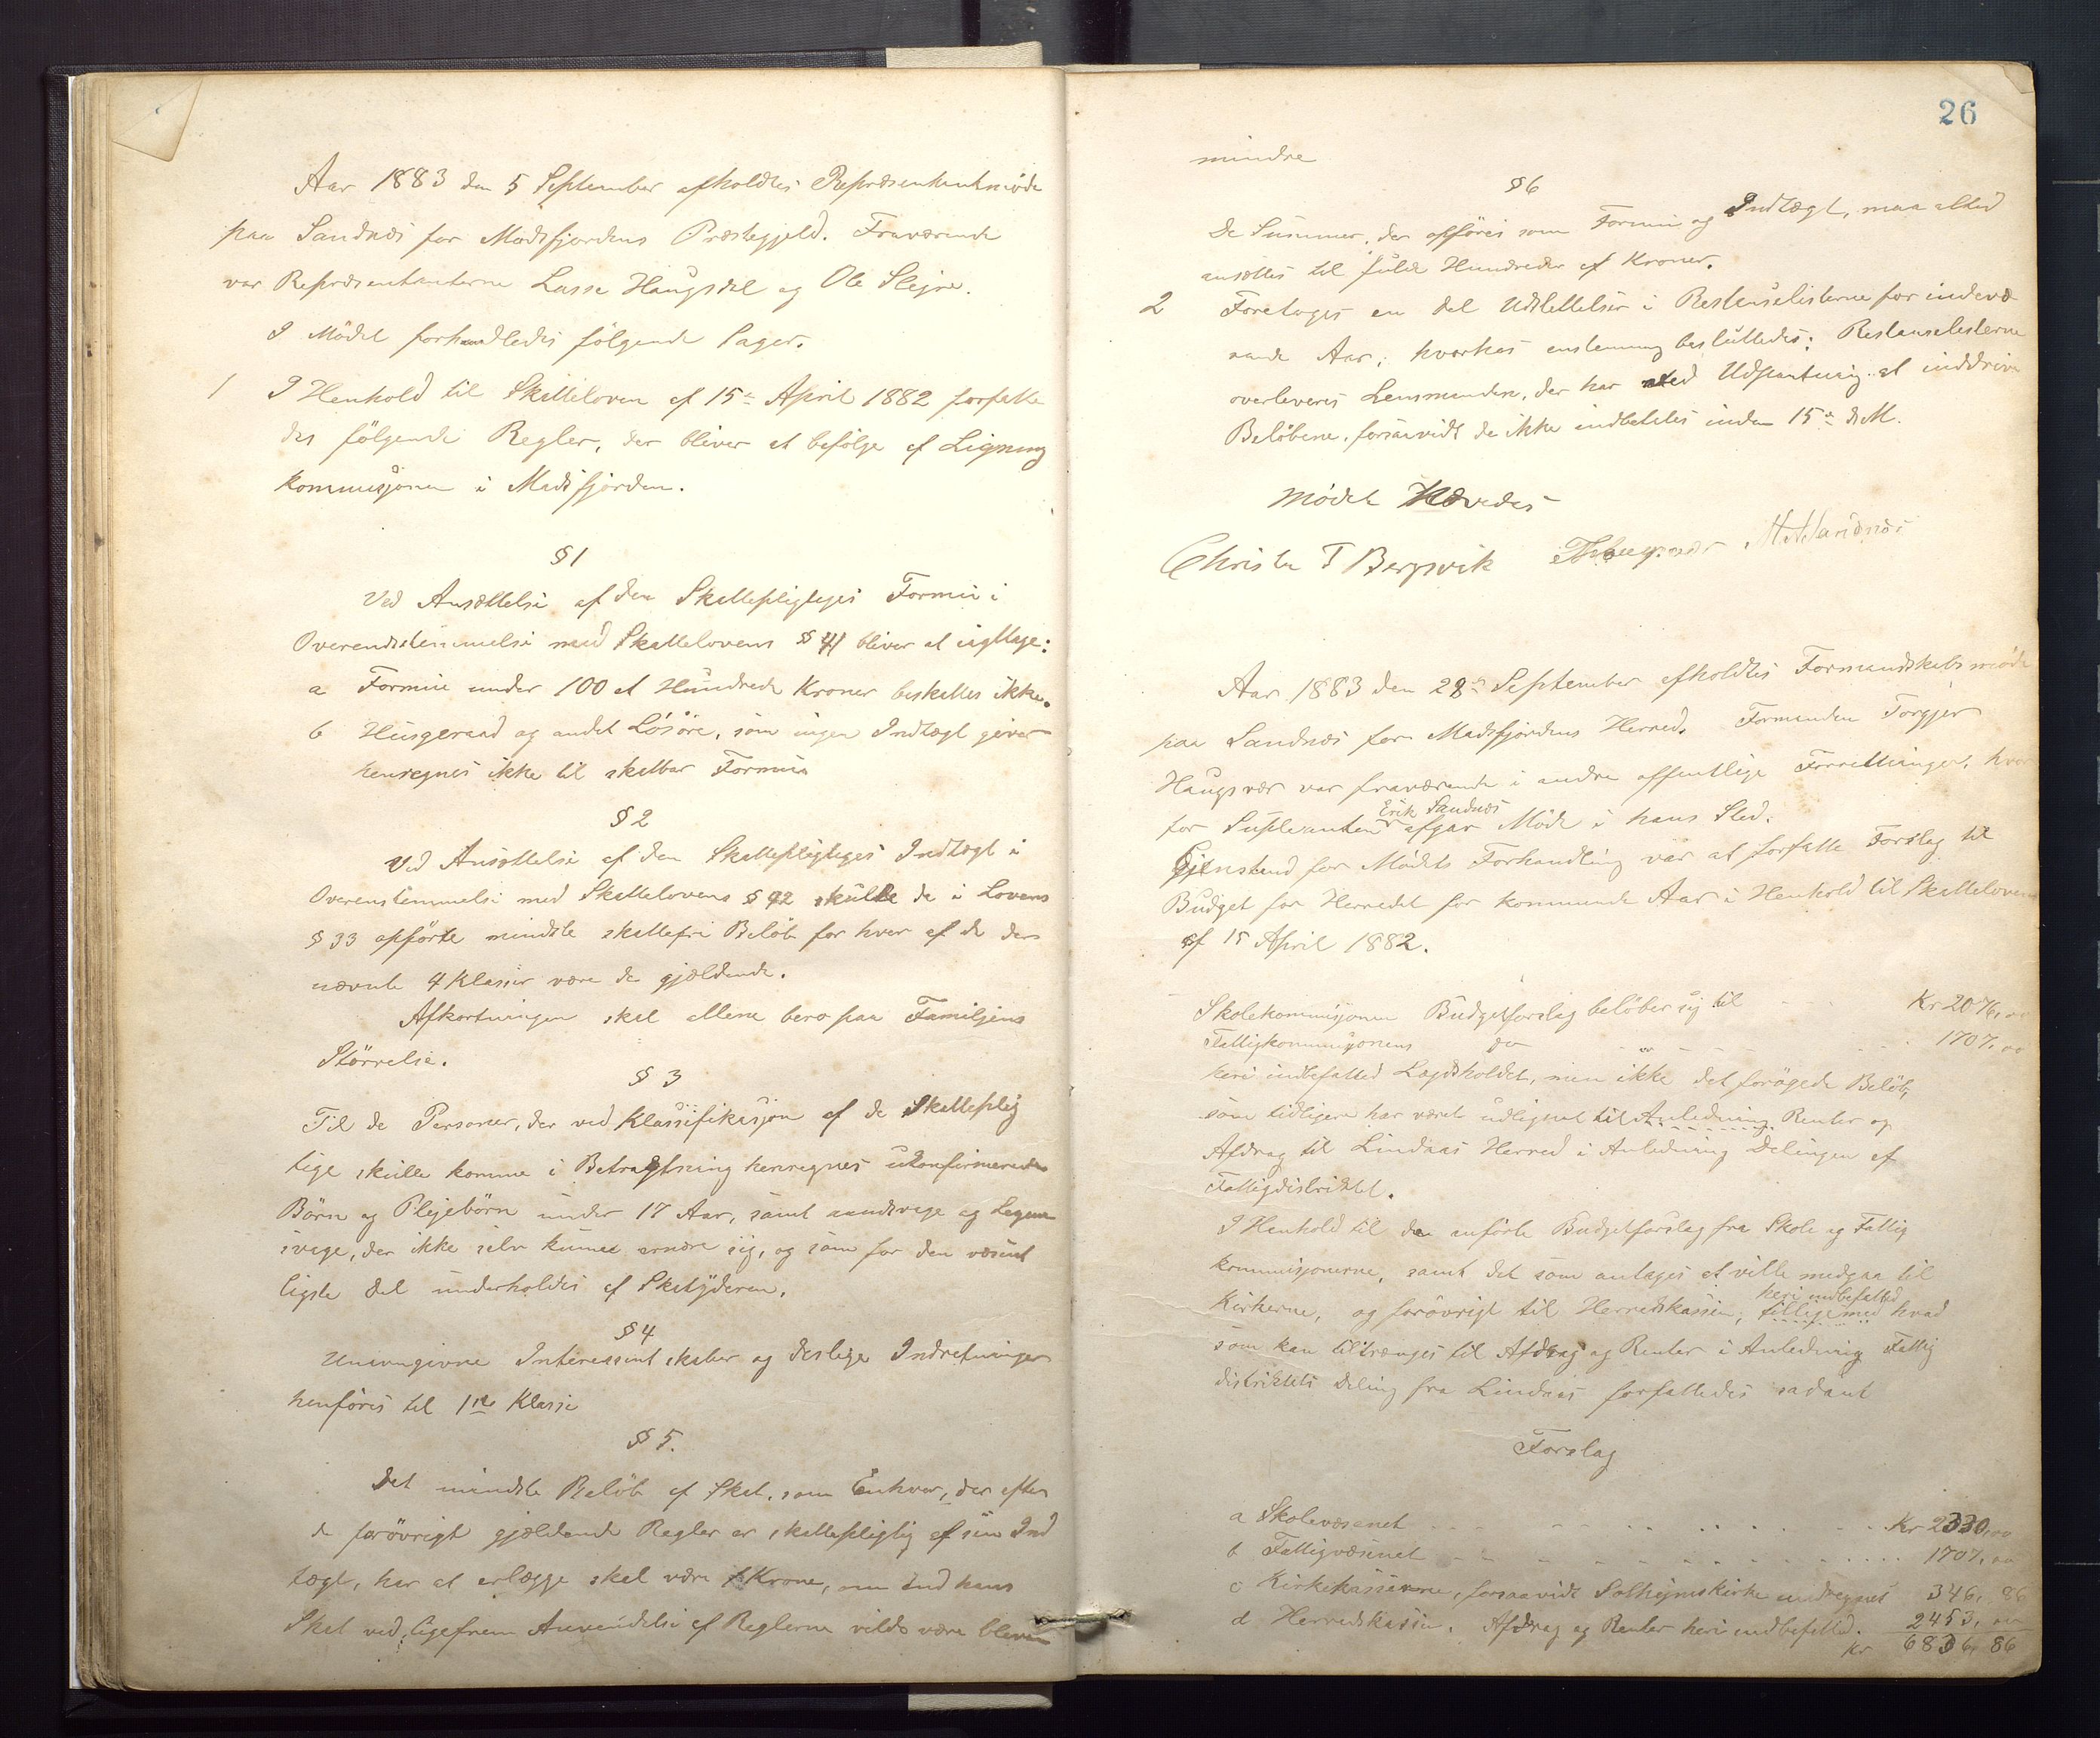 Aar 1883 den 5 September afholdtes Repræsentantmöde
paa Sandnæs for Masfjordens Præstegjeld. Fraværende
var Repræsentanterne Lasse Haugsdal og Ole Sleire.
I Mödet forhandledes fölgende Sager.
1 I Henhold til Skatteloven af 15de April 1882 forfatte
des fölgende Regler, der bliver at befölge af Ligning
kommisjonen i Masfjorden.
§ 1
Ved Ansættelse af den Skattepligtiges Formue i
Overensstemmelse med Skattelovens § 41 bliver at iagttage:
a Formue under 100 et Hundrede Kroner beskattes ikke.
b Husgeraad og andet Lösöre, som ingen Indtægt giver
henregnes ikke til skatbar Formue
§ 2
Ved Ansættelse af den Skattepligtiges Indtægt i
Overenstemmelse med Skattelovens § 42 skulle de i Lovens
§ 33 opförte mindste skattefri Belöb for hver af de der
nævnte 4 Klasser være de gjældende.
Afkortningen skal allene bero paa Familjens
Störrelse.
§ 3
Til de Personer, der ved Klassifikasjon af de Skatteplig
tige skulle komme i Betragtning henregnes ukonfirmerede
Börn og Plejebörn under 17 Aar, samt aandsvage og Legem
svage, der ikke selv kunne ernære sig, og som for den væsent
ligste Del underholdes af Skatyderen.
§ 4
Unavngivne Interessentskaber og deslige Indretninger
henföres til 1ste Klasse
§ 5.
Det mindste Belöb af Skat, som Enhver, der efter
de forövrigt gjældende Regler er skattepligtig af sin Ind
tægt, har at erlægge skal være 1 Krone, om end hans
Skat ved ligefrem Anvendelse af Reglerne vilde være bleven
26
mindre
§ 6
De Summer, der opföres som Formue og Indtægt, maa altid
ansættes til fulde Hundreder af Kroner.
2 Foretoges en Del Udslettelser i Restanselisterne for indevæ
rende Aar; hvorhos enstemmig beslutledes: Restanselisterne
overleveres Lensmanden, der har ved Udpantning at inddrive
Belöbene, forsaavidt de ikke indbetales inden 15de d.M.
Mödet Hævedes
Christen T Bergsvik
Aar 1883 den 28de September afholdtes Formandskabsmöde
paa Sandnæs for Masfjordens Herred. Formanden Torgjer
Haugsvær var fraværende i andre offentlige Forretninger, hvor
Erik Sandnæs
for Suplianten afgav Möde i hans Sted.
Gjenstand for Mödets Forhandling var at forfatte Forslag til
Budget for Herredet for kommende Aar i Henhold til Skatteloven
af 15 April 1882.
Skolekommisjonen Budgetforslag belöber sig til Kr 2076, oo
Fattigkommisjonens do 1707. oo
heri indbefatted Lægdsholdet, men ikke det forögede Belöb,
som tidligere har været udlignet til Anledning Renter og
Afdrag til Lindaas Herred i Anledning Delingen af
Fattigdistriktet.
I Henhold til den anförte Budgetforslag fra Skole og Fattig
kommisjonerne, samt det som antages at ville medgaa til
heri indbefatted
Kirkerne, og forövrigt til Herredskassen, tilligemed hvad
som kan tiltrænges til Afdrag og Renter i Anledning Fattig
distriktets Deling fra Lindaas forfattedes sadant
Forslag
a Skolevæsenet Kr 2330, oo
b Fattigvæsenet 1707, oo
c Kirkekasserne, forsaavidt Solheimskirke undtages 346, 86
d Herredskassen. Afdrag og Renter heri indbefatted. 2453, oo
Kr 6836, 86